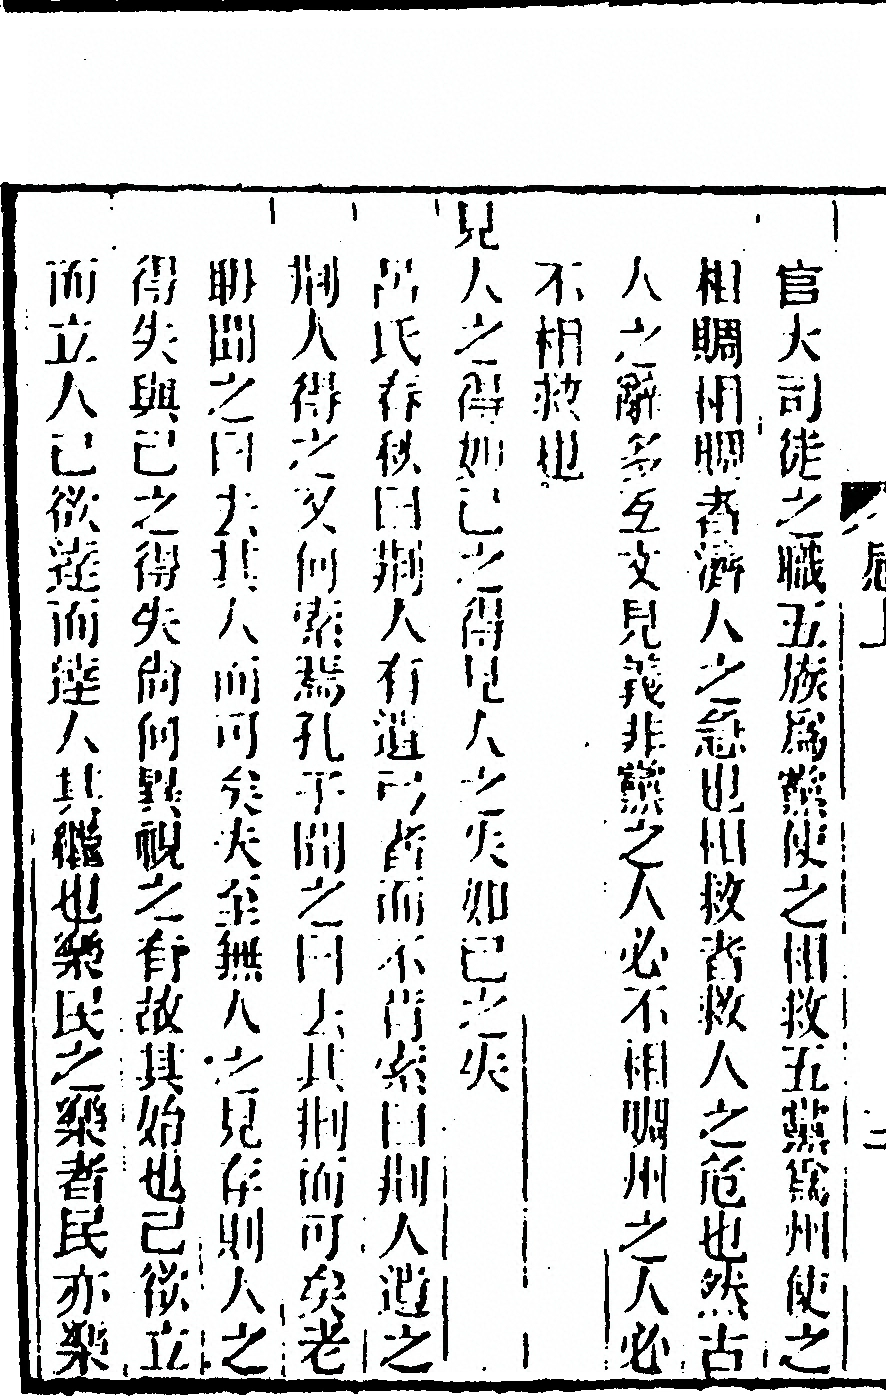 官大司徒之職五族爲黨使之相救五黨爲州使之
相賙相賙者濟人之急也相救者救人之危也然古
人之辭多互文見義非黨之人必不相賙州之人必
不相救也
見人之得如己之得見人之失如己之失
呂氏春秋曰荆人有遺弓者而不肯索曰荆人遺之
荆人得之又何索焉孔子聞之曰去其荆而可矣老
聃聞之曰去其人而可矣夫至無人之見存則人之
得失與己之得失尚何異視之有故其始也己欲立
而立人己欲達而達人其繼也樂民之樂者民亦樂